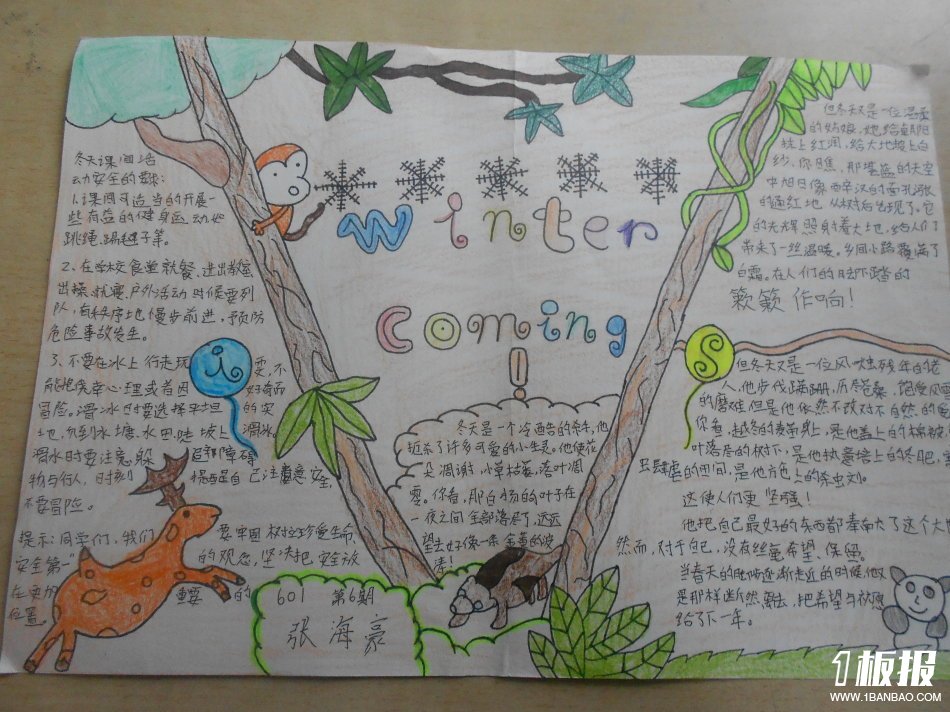 冬天课间活
动安全的要求:
1.课间可适当的开展一
些有益的健身运动如
跳绳、踢毽子等。
2、在学校食堂就餐、进出教室
出操、就寝、户外活动时候要列
队,有秩序地慢步前进,预防
危险事故发生。
3、不要在冰上行走玩 耍,不
能抱侥幸心理或者因 好奇而
冒险。滑冰时要选择平坦 的实
地,勿到水塘、水田、陡坡上 滑冰。
滑冰时要注意躲 避障碍
物与行人,时刻 提醒自己注意安全,
不要冒险。
提示:同学们,我们 要牢固树立珍爱生命,
安全第一 的观念,坚决把,安放
在更加 重要的
位置。
i
winter
coming
!
冬天是一个冷酷的杀手,他
扼杀了许多可爱的小生灵。他使花
朵凋谢,小草枯萎,落叶凋
零。你看,那白杨的叶子在
一夜之间全部落尽了,远远
望去好像一条金黄的波
涛!
601 第6期
张海豪
但冬天又是一位温柔
的姑娘,她给朝阳
抹上红润,给大地披上白
纱。你瞧,那湛蓝的天空
中旭日像
红地从树后出现了。它
的光辉照射着大地,给人们
带来了一丝温暖。乡间小路覆满了
白霜。在人们的脚下踏的
簌簌作响!
S
但冬天又是一位风烛残年的佬
人,他步伐蹒跚,历尽沧桑,饱受风
的磨难但是他依然不改对大自然的
你看,越冬的麦苗身上,是他盖上的棉被
叶落尽的树下,是他执意培上的冬肥,
虐的田间,是他洒上的杀虫剂。
这使人们更坚强!
他把自己最好的东西都奉献大了这个大
然而,对于自己,没有丝毫希望、保留。
当春天的脚步逐渐走近的时候,他又
是那样断然离去,把希望与
给了下一年。
1板报
WWW.1BANBAO.COM